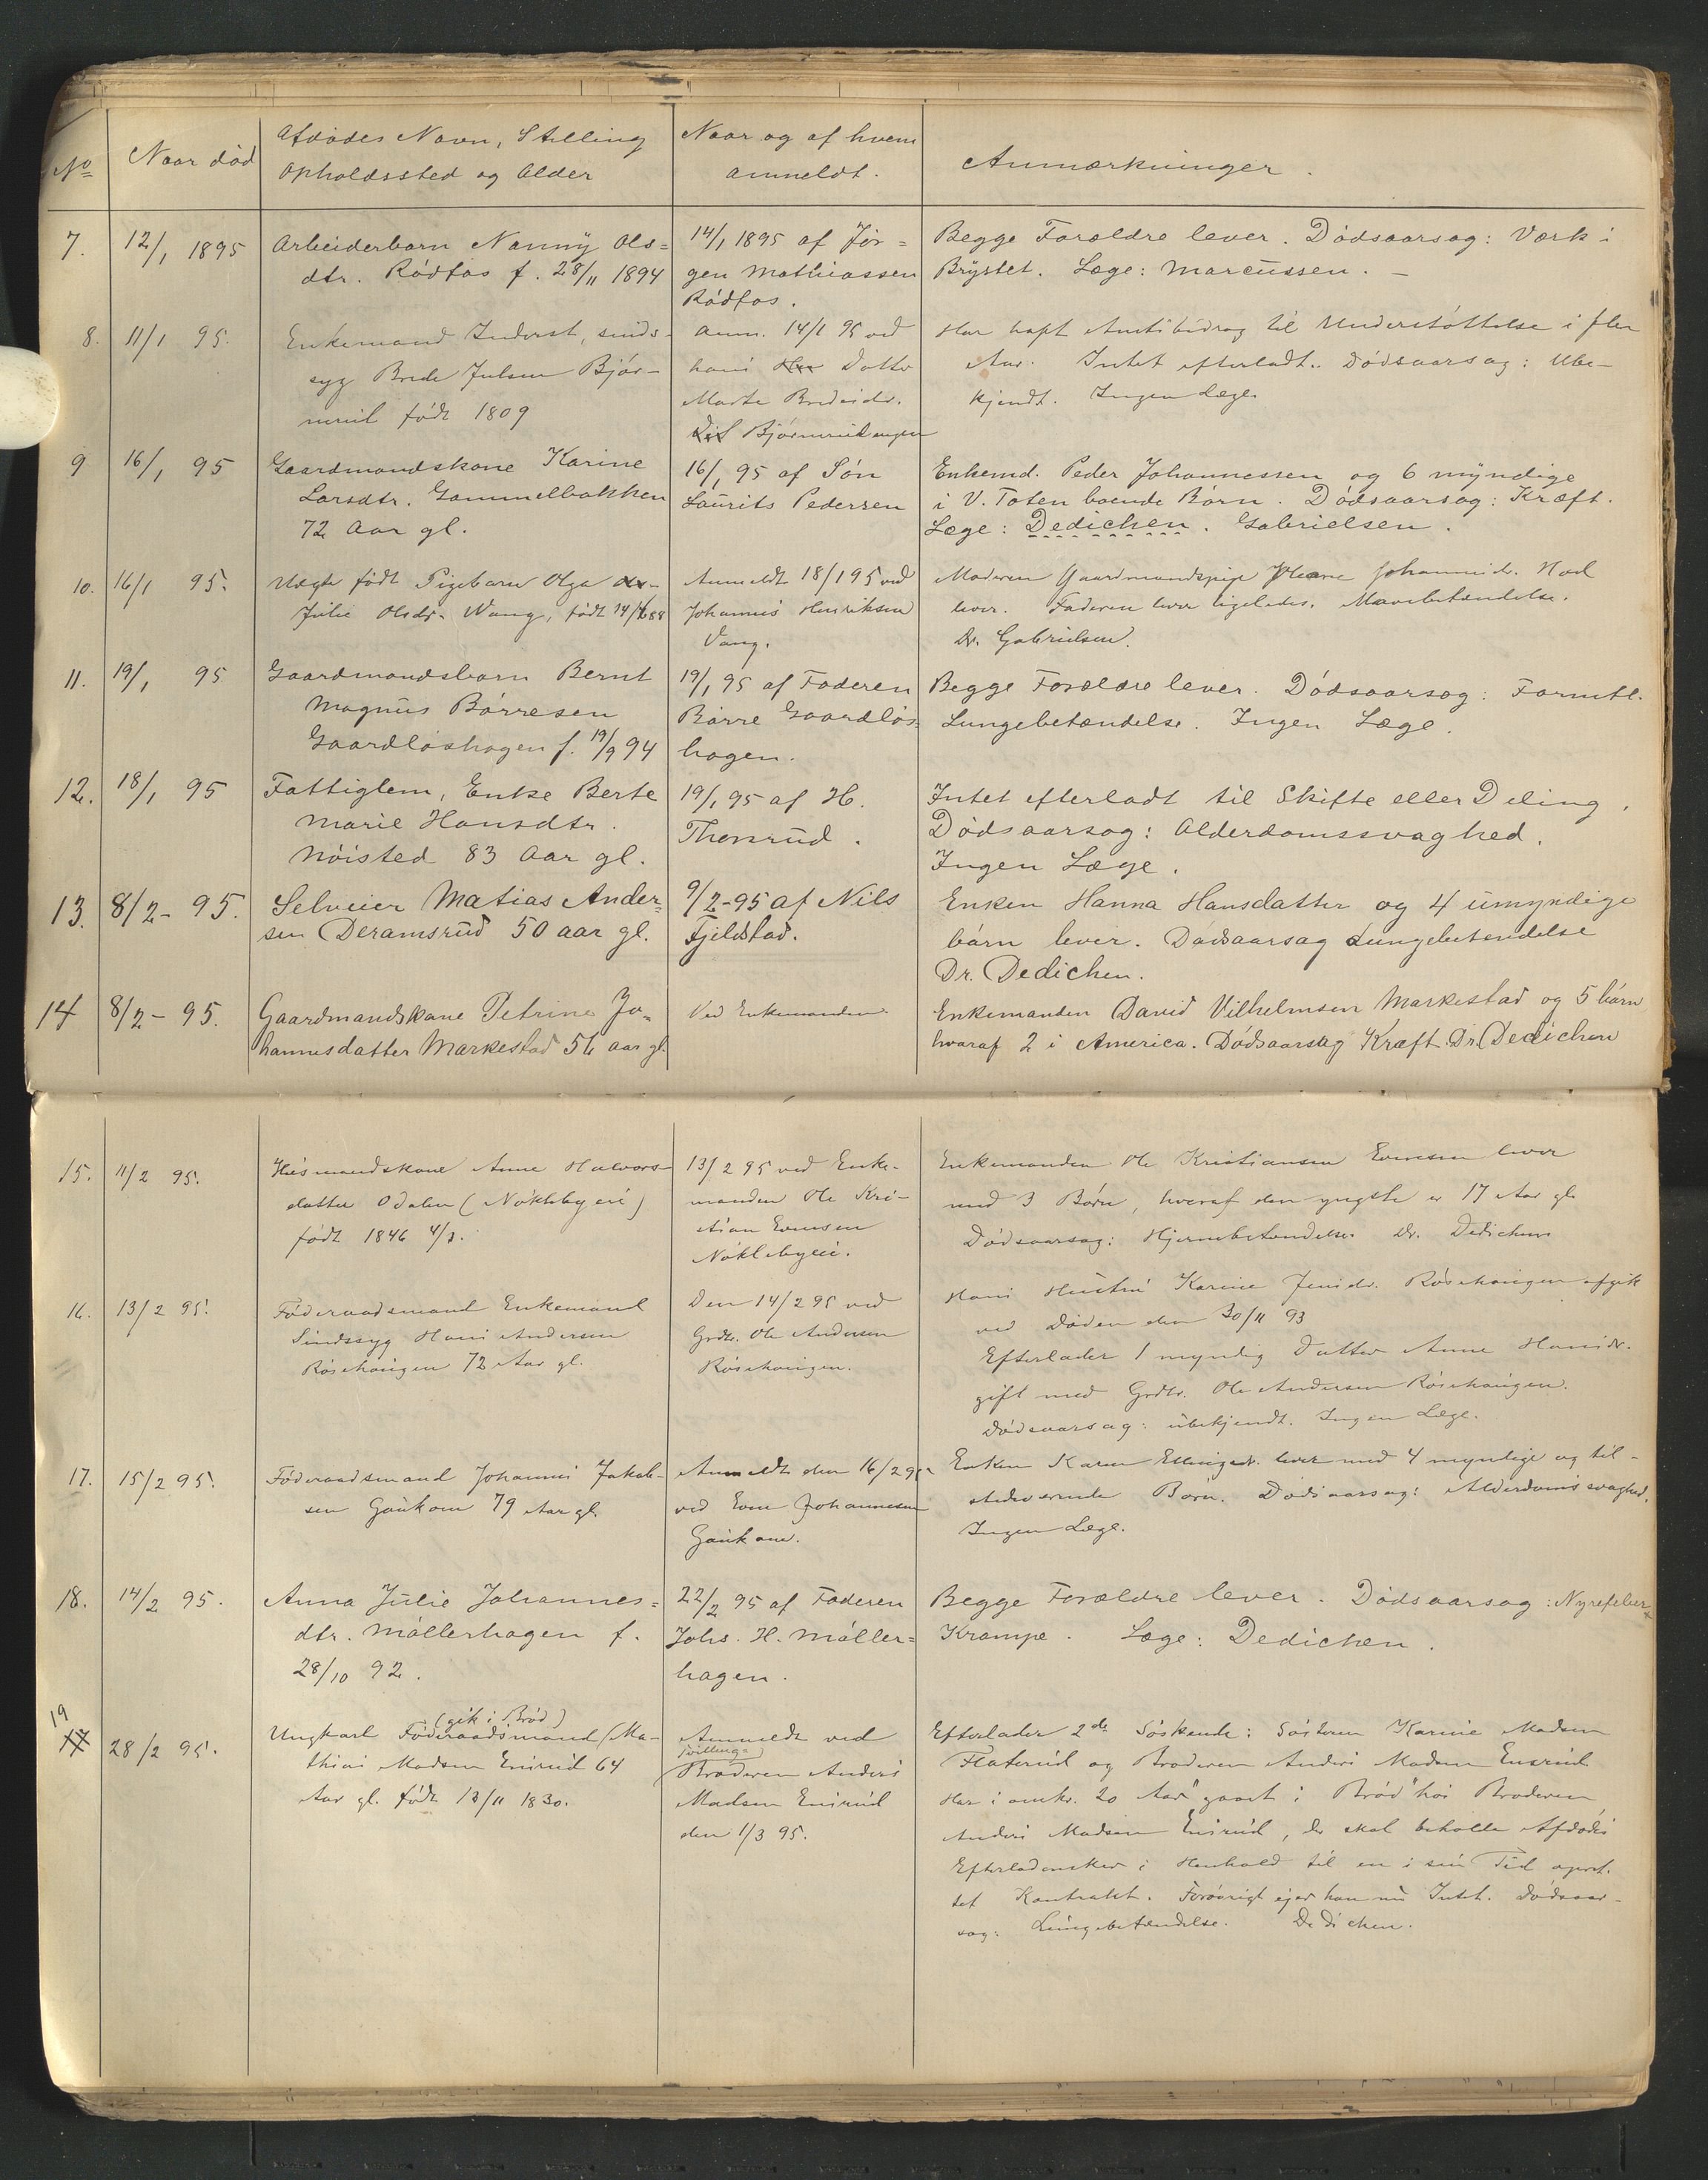 No
Naar död
Afdödes Navn, Stilling
Opholdssted og Alder
Naar og af hvem
anmeldt.
Anmærkninger.
7. 12/1 1895
Arbeiderbarn Nanny Ols=
dtr. Rödfos f. 28/11 1894
14/1 1895 af Jör=
gen Mathiassen
Rödfos.
Begge Forældre lever. Dödsaarsag: Værk i
Brystet. Læge: Marcussen. –
8. 11/1 95.
Enkemand Inderst, sinds-
syg Brede Julsen Björ-
nerud födt 1809
Anm. 14/1 95 ved
hans Datter
Marte Bredesdr.
Björnerudengen
Har havt Amtsbidrag til Understöttelse i fler
Aar. Intet efterladt. Dödsaarsag: Ube-
kjendt. Ingen Læge.
9 16/1 95
Gaardmandskone Karine
Larsdtr. Gammelbakken
72 Aar gl.
16/1 95 af Sön
Laurits Pedersen
Enkemd. Peder Johannessen og 6 myndige
i V. Toten boende Börn. Dödsaarsag: Kræft.
Læge: Dedichen. Gabrielsen.
10. 16/1 95.
Uægte födt Pigebarn Olga
Julie Olsdr. Wang, födt 14/6 88
Anmeldt 18/1 95 ved
Johannes Henriksen
Vang.
Moderen Gaardmandspige Johannesdr. Hod
lever. Faderen lever ligeledes. Mavebetændelse.
Dr. Gabrielsen.
11. 19/1 95
Gaardmandsbarn Bernt
Magnus Börresen
Gaardlöshagen f. 19/9 94
19/1 95 af Faderen
Börre Gaardlös-
hagen.
Begge Forældre lever. Dödsaarsag: Formtl.
Lungebetændelse. Ingen Læge.
12. 18/1 95
Fattiglem, Enke Berte
Marie Hansdtr.
Nöisted 83 Aar gl.
19/1 95 af H.
Thonrud.
Intet efterladt til Skifte eller Deling.
Dödsaarsag: Alderdomssvaghed.
Ingen Læge.
13. 8/2 - 95.
Selveier Matias Ander=
sen Deramsrud 50 aar gl.
9/2-95 af Nils
Fjeldstad.
Enken Hanna Hansdatter og 4 umyndige
börn lever. Dödsaarsag Lungebetændelse
Dr. Dedichen.
14 8/2 - 95.
Gaardmandskone Petrine Jo=
hannesdatter Markestad 56 aar gl.
Ved Enkemanden
Enkemanden David Vilhelmsen Markestad og 5 börn
hvoraf 2 i America. Dödsaarsag Kræft. Dr. Dedichen
15. 11/2 95.
Husmandskone Anne Halvors-
datter Odalen (Nöklebyeie)
födt 1846 4/3.
13/2 95 ved Enke-
manden Ole Kri-
stian Evensen
Nöklebyeie.
Enkemanden Ole Kristiansen Evensen lever
med 3 Börn, hvoraf den yngste er 17 Aar gl.
Dödsaarsag: Hjernebetændelse. Dr. Dedichen
16. 13/2 95.
Föderaadsmand Enkemand
Sindssyg Hans Andersen
Rösehaugen 72 Aar gl.
Den 14/2 95 ved
Grdbr. Ole Andersen
Rösehaugen.
Hans Hustru Karine Jensdr. Rösehaugen afgik
ved Döden den 30/11 93
Efterlader 1 myndig Datter Anne Hansdr.
gift med Grdbr. Ole Andersen Rösehaugen.
Dödsaarsag: ubekjendt. Ingen Læge.
17. 15/2 95.
Föderaadsmand Johannes Jakob-
sen Gaukom 79 Aar gl.
Anmeldt den 16/2 95
ved Even Johannesen
Gaukom.
Enken Karen Ellingsdr. lever med 4 myndige og til-
stedeværende Börn. Dödsaarsag: Alderdomssvaghed.
Ingen Læge.
18. 14/2 95.
Anna Julie Johannes=
dtr. Möllerhagen f.
28/10 92.
22/2 95 af Faderen
Johs. H. Möller=
hagen.
Begge Forældre lever. Dödsaarsag: Nyrefeber
Krampe. Læge: Dedichen.
19
28/2 95.
(gik i Bröd)
Ungkarl Föderaadsmand Ma-
thias Madsen Ensrud 64
Aar gl. födt 13/11 1830.
Anmeldt ved
Tvilling=
Broderen Anders
Madsen Ensrud
den 1/3 95.
Efterlader 2de Söskende: Sösteren Karine Madsen
Flaterud og Broderen Anders Madsen Ensrud
Har i omkr. 20 Aar "gaaet i Bröd" hos Broderen
Anders Madsen Ensrud, der skal beholde Afdödes
Efterladenskaber i Henhold til en i sin Tid opret-
tet Kontrakt. Forövrigt ejer han nu Intet. Dödsaar-
sag: Lungebetændelse. Dedichen.